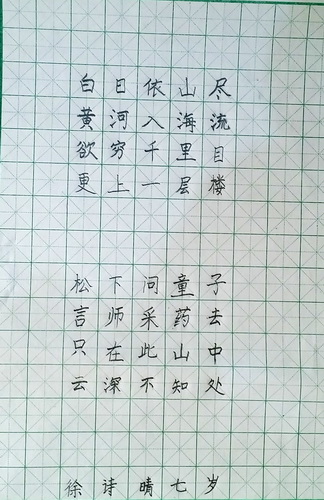 白日依山尽
黄河入海流
欲穷千里目
更上一层楼
松下问童子
言师采药去
只在此山中
云深不知处
徐诗晴七岁